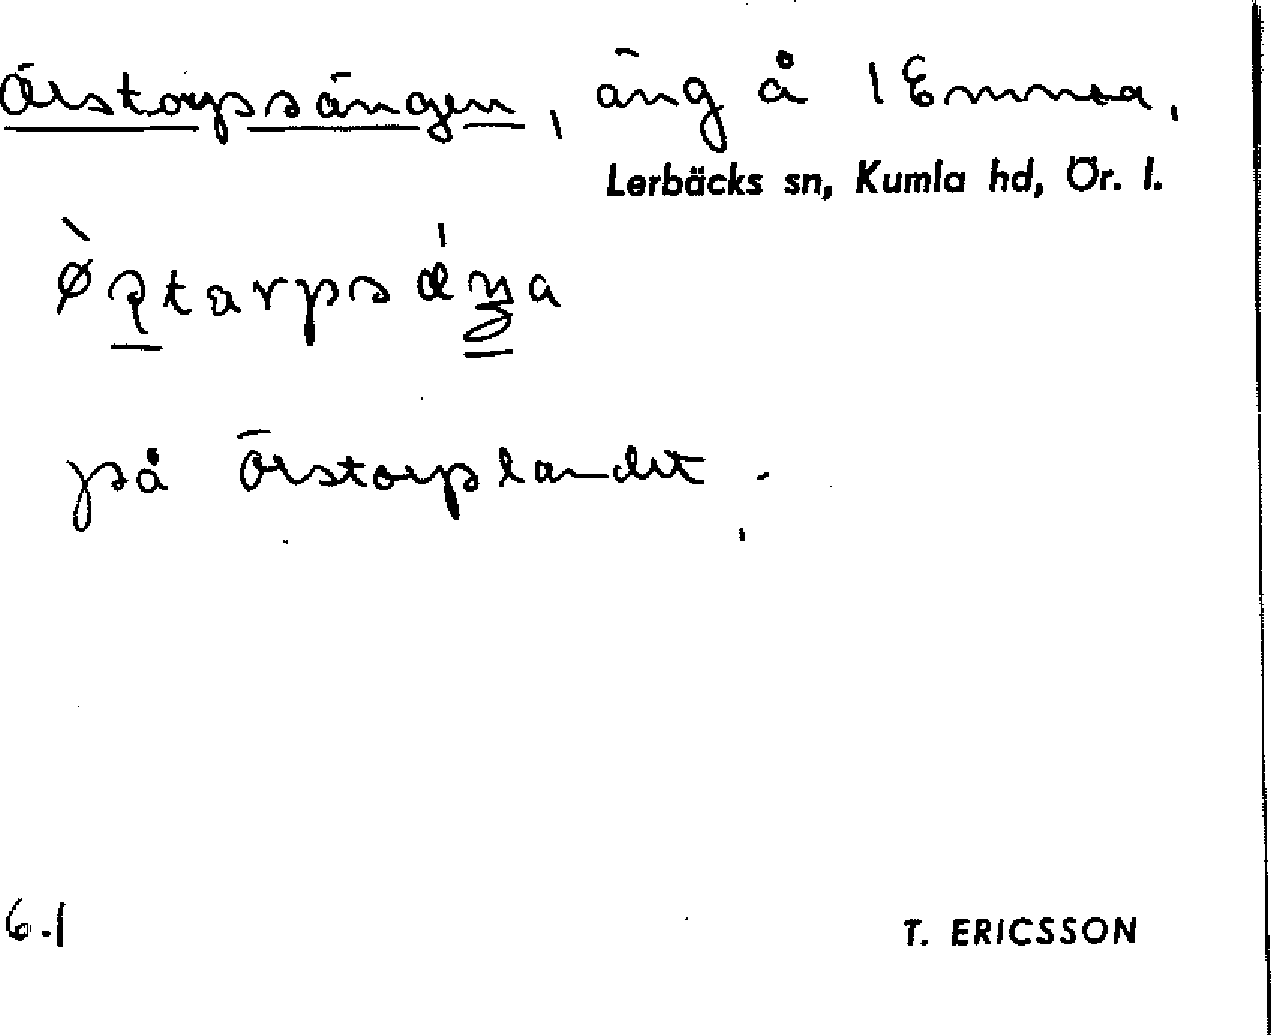 Örstorpsängen, äng å 1 Emmea,
Lerbäcks sn, Kumla hd, Ör. l.
på Örstorplandet.
6.1
T. ERICSSON